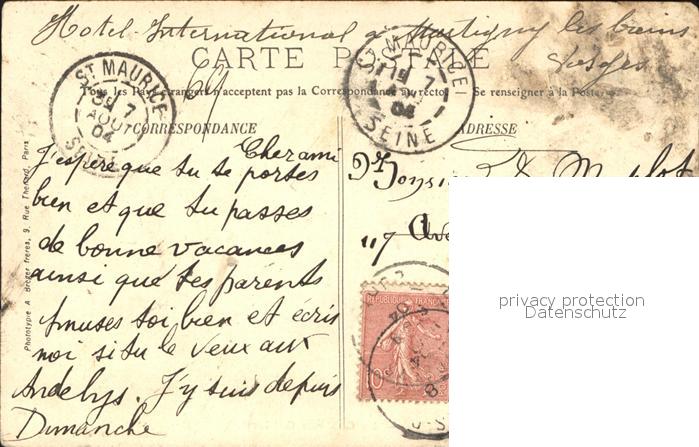 Hotel International a Martigny les bains
Vosges
CARTE POSTALE
Tous les Pays étrangers n'acceptent pas la Correspondance au recto. Se renseigner à la Poste
ST MAURICE
3E 7
AOUT
04
SEINE
ST MAURICE
1E 7
04
SEINE
CORRESPONDANCE
ADRESSE
Cher ami
J'espère que tu te portes
bien et que tu passes
de bonne vacances
ainsi que tes parents
Amuses toi bien et écris
moi si tu le veux aux
Andelys. J'y suis depuis
Dimanche
117 Ave
REPUBLIQUE FRANÇAISE
10
Phototypie A. Breger frères, 9, Rue Thénard, Paris
privacy protection
Datenschutz